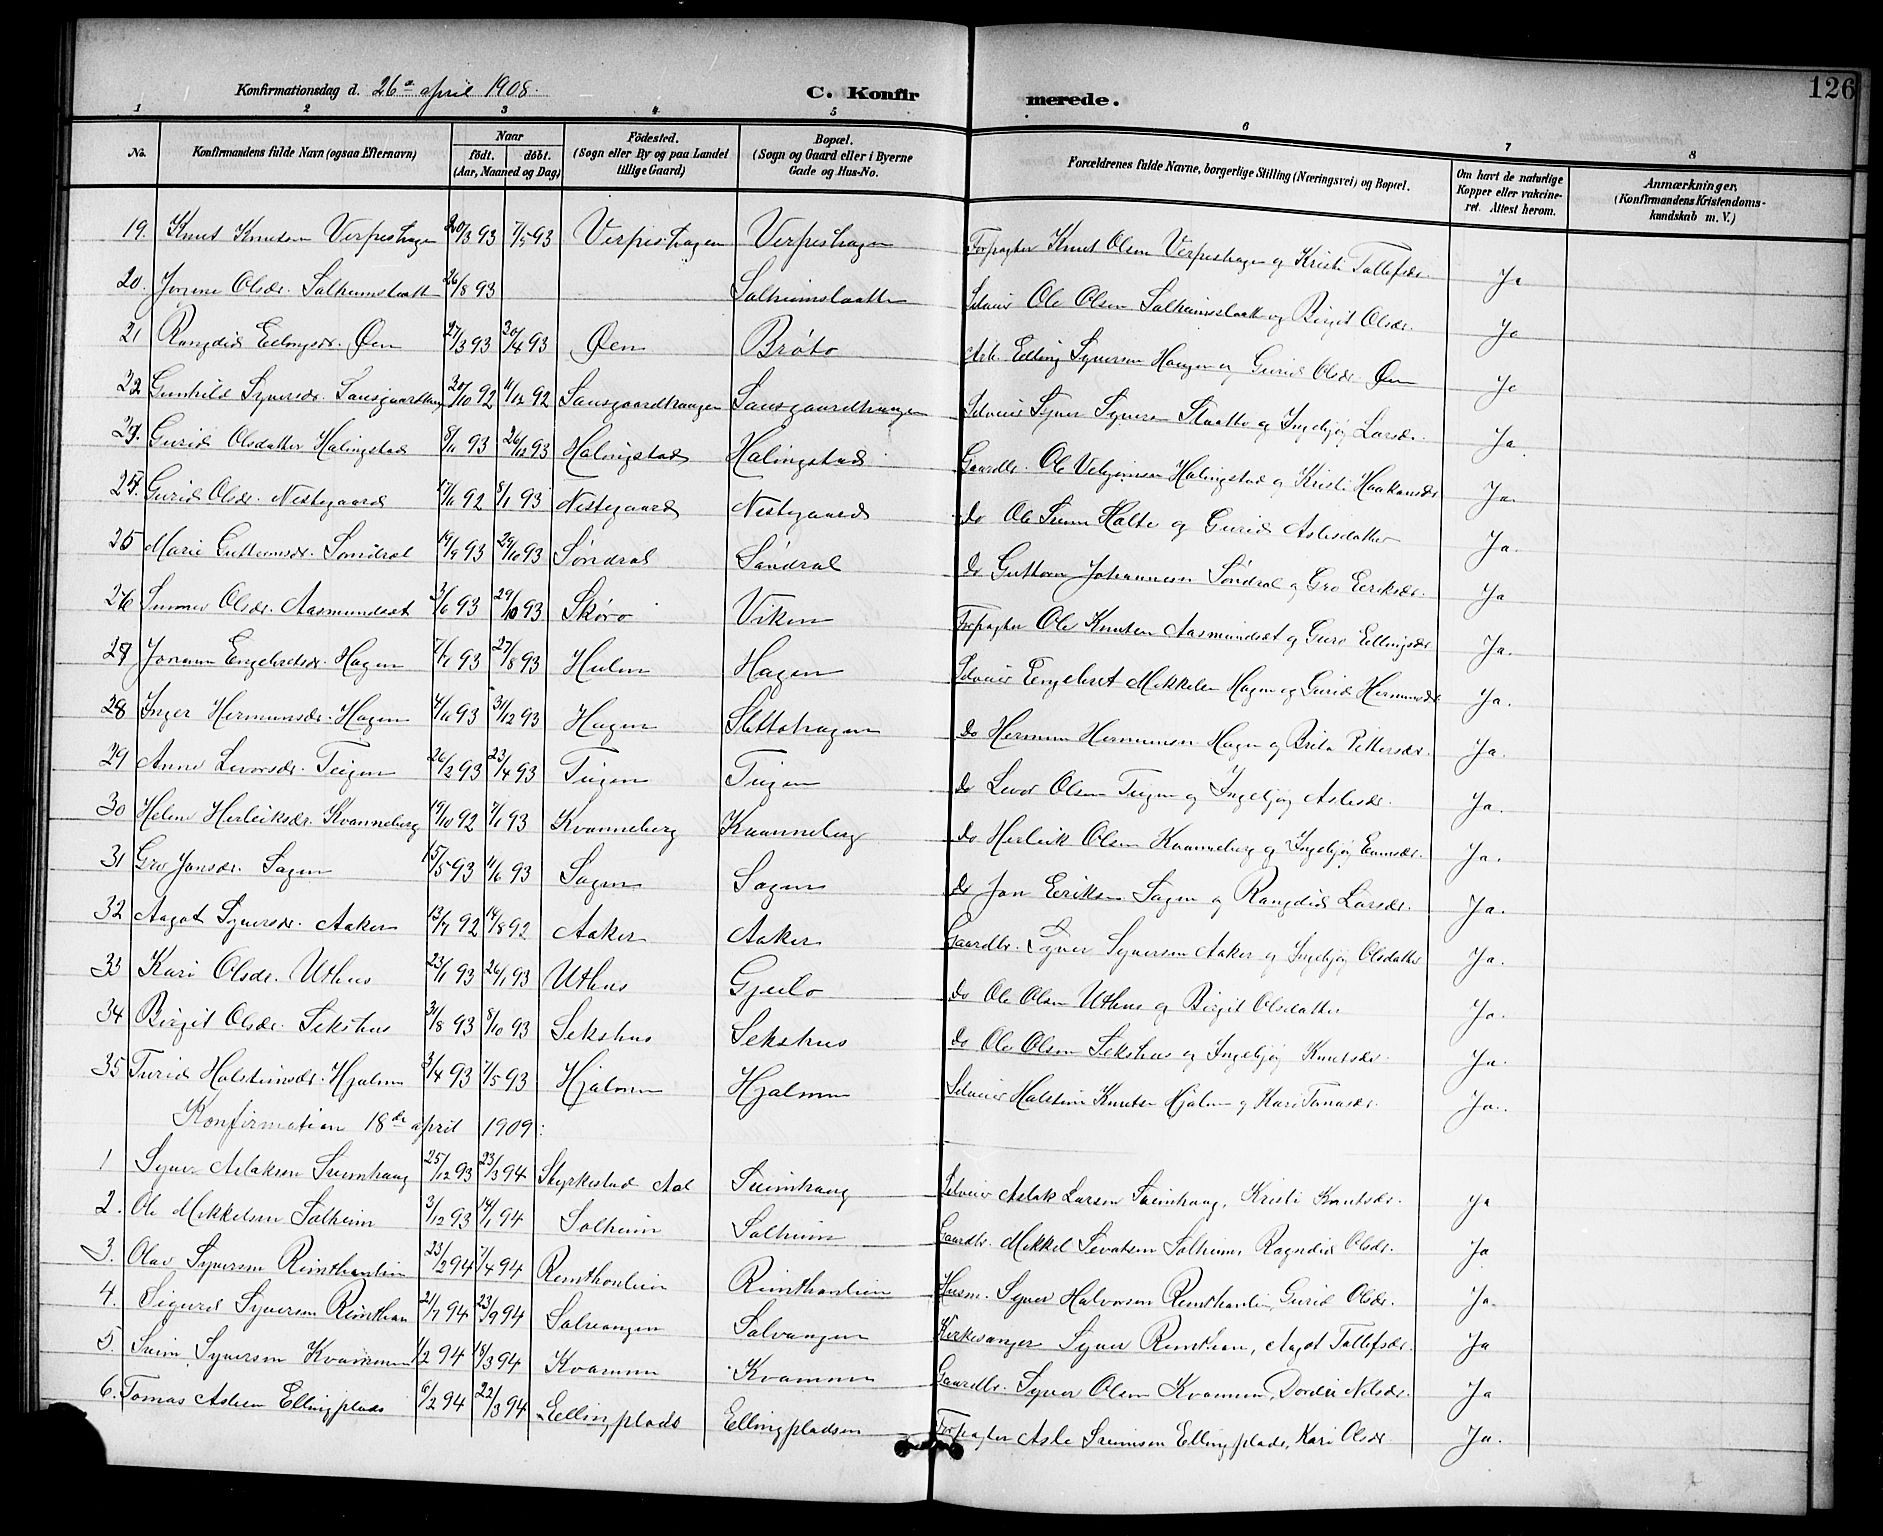 126
Konfirmationsdag d. 26de april 1908. C. Konfirmerede.
1 2 3 4 5 6 7 8
No. Konfirmandens fulde Navn (ogsaa Efternavn) Naar født. døbt. (Aar, Maaned og Dag) Fødested. (Sogn eller By og paa Landet tillige Gaard) Bopæl. (Sogn og Gaard eller i Byerne Gade og Hus-No. Forældrenes fulde Navne, borgerlige Stilling (Næringsvei) og Bopæl. Om havt de naturlige Kopper eller vakcineret. Attest herom. Anmærkninger, (Konfirmandens Kristendomskundskab m. V.)
19. Knut Knutson Verpeshagen 20/3 93 7/5 93 Verpeshagen Verpeshagen Forpagter Knut Olsen Verpeshagen og Kristi Tollefsdr. Ja
20. Jorunn Olsdr. Solheimslaatt 26/8 93 Solheimslaatten Selveier Ole Olsen Solheimslaatt og Birgit Olsdr. Ja
21 Rangdid Ellingsdr. Øen 27/3 93 30/4 93 Øen Brøto Arb. Elling Syversen Haugen og Gurid Olsdr. Øen Ja
22 Gunhild Syversdr. Sausgaardhaug 20/10 92 11/12 92 Sausgaardhaugen Sausgaardhaugen Selveier Syver Syversen Slaatto og Ingebjøg Larsdr. Ja.
23. Gurid Olsdatter Halingstad 8/11 93 26/12 93 Halingstad Halingstad Gaardbr. Ole Vebjørnsen Halingstad og Kristi Haakonsdr Ja.
24. Gurid Olsdr. Nestegaard 17/11 92 8/1 93 Nestegaard Nestegaard do Ole Sveinsen Holto og Gurid Aslesdatter Ja.
25 Marie Guttormsdr. Søndral 14/9 93 29/10 93 Søndral Søndral do Guttorm Johannesen Søndral og Gro Eriksdr. Ja
26 Olsdr. Aasmundset 3/6 93 29/10 93 Skøro Viken Forpagter Ole Knutsen Aasmundset og Guro Ellingsdr Ja.
27 Jorunn Engebretsdr. Hagen 93 27/8 93 Hulen Hagen Selveier Engebret Mikkelsen Hagen og Gurid Hermundsdr Ja.
28 Inger Hermunsdr. Hagen 93 31/12 93 Hagen Slettohagen do Hermun Hermunsen Hagen og Brita Pettersdr. Ja.
29 Anne Levorsdr. Teigen 26/2 93 23/4 93 Teigen Teigen do Levor Olsen Teigen og Ingebjøg Aslesdr. Ja.
30 Helene Herleiksdr. Kvanneberg 19/10 92 1/1 93 Kvanneberg Kvanneberg do Herleik Olsen Kvanneberg og Ingebjøg Evensdr. Ja.
31 Gro Jonsdr. Sagen 15/5 93 11/6 93 Sagen Sagen do Jon Eriksen Sagen og Rangdid Larsdr. Ja.
32 Aagot Syversdr. Aaker 13/7 92 14/8 92 Aaker Aaker Gaardbr. Syver Syversen Aaker og Ingebjøg Olsdatter Ja.
33 Kari Olsdr. Uthus 23/1 93 26/1 93 Uthus Gjeilo do Ole Olsen Uthus og Birgit Olsdatter Ja.
34 Birgit Olsdr. Sekshus 31/8 93 8/10 93 Sekshus Sekshus do Ole Olsen Sekshus og Ingebjøg Knutsdr. Ja.
35 Turid Holsteinsdr. Hjalmen 3/4 93 7/5 93 Hjalmen Hjalmen Selveier Holstein Knutsen Hjalmen og Kari Tomasdr. Ja.
Konfirmation 18de april 1909:
1 Syver Aslaksen Sveinhaug 25/12 93 23/3 94 Styrkestad Aal Sveinhaug Selveier Aslak Larsen Sveinhaug, Kristi Knutsdr. Ja
2. Ole Mikkelsen Solheim 3/12 93 14/1 94 Solheim Solheim Gaardbr. Mikkel Sevatsen Solheim, Ragndid Olsdr. Ja
3. Olav Syversen Reinthonlien 23/2 94 1/4 94 Reinthonlien Reinthonlien Husm. Syver Halvorsen Reinthonlien, Gurid Olsdr. Ja.
4. Sigurd Syversen Reinthon 21/7 94 23/9 94 Solvangen Solvangen Kirkesanger Syver Reinthon, Aagot Tollefsdr. Ja
5. Svein Syversen Kvammen 1/2 94 18/3 94 Kvammen Kvammen Gaardbr. Syver Olsen Kvammen, Dordei Nilsdr. Ja
6. Tomas Aslesen Ellingplads 6/2 94 22/3 94 Ellingplads Ellingpladsen Forpagter Asle Sveinsen Ellingplads, Kari Olsdr Ja.